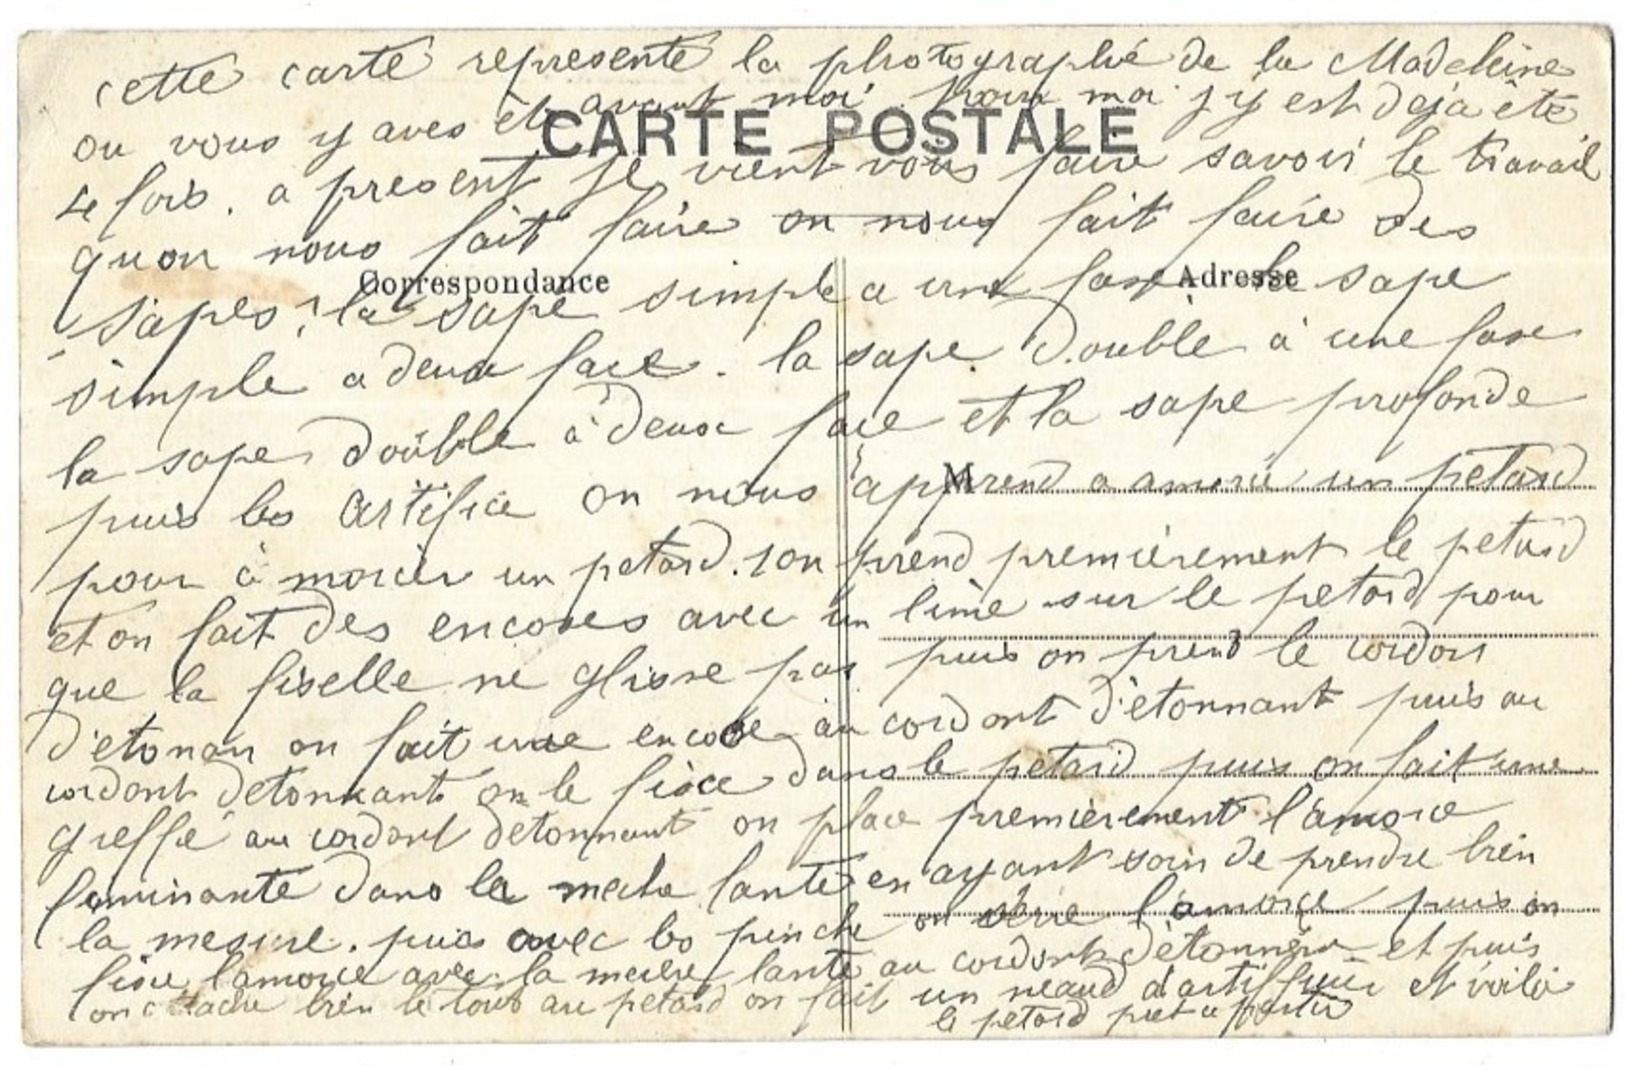 cette carte represente la photographié de la Madeleine
ou vous y aves êté avant moi pour moi j'y est deja êté
CARTE POSTALE
4 fois. a present je vient vous faire savoir le travail
quon nous fait faire on nous fait faire des
Correspondance
Adresse
sapes; la sape simple a une fase la sape
simple a deux face. la sape double à une fase
la sape double à deux face et la sape profonde
M
puis les artifice on nous apprend a amorcé un petard
pour à morcer un petard. on prend premièrement le petard
et on fait des encoves avec un lime sur le petard pour
que la fiselle ne glisse pas puis on prend le cordon
d'etonan on fait une encove au cordont d'etonnant puis au
cordont detonnant on le fixe dans le petard puis on fait une
greffé au cordont detonnant on place premièrement l'amorce
luminante dans la meche lante en ayant soin de prendre bien
la mesure. puis avec les pinche on sère l'amorce puis on
fixe lamorce avec la meche lante au cordont détonnant et puis
on attache bien le tout au petard on fait un neaud d'artiffice et voila
le petard pret a partir